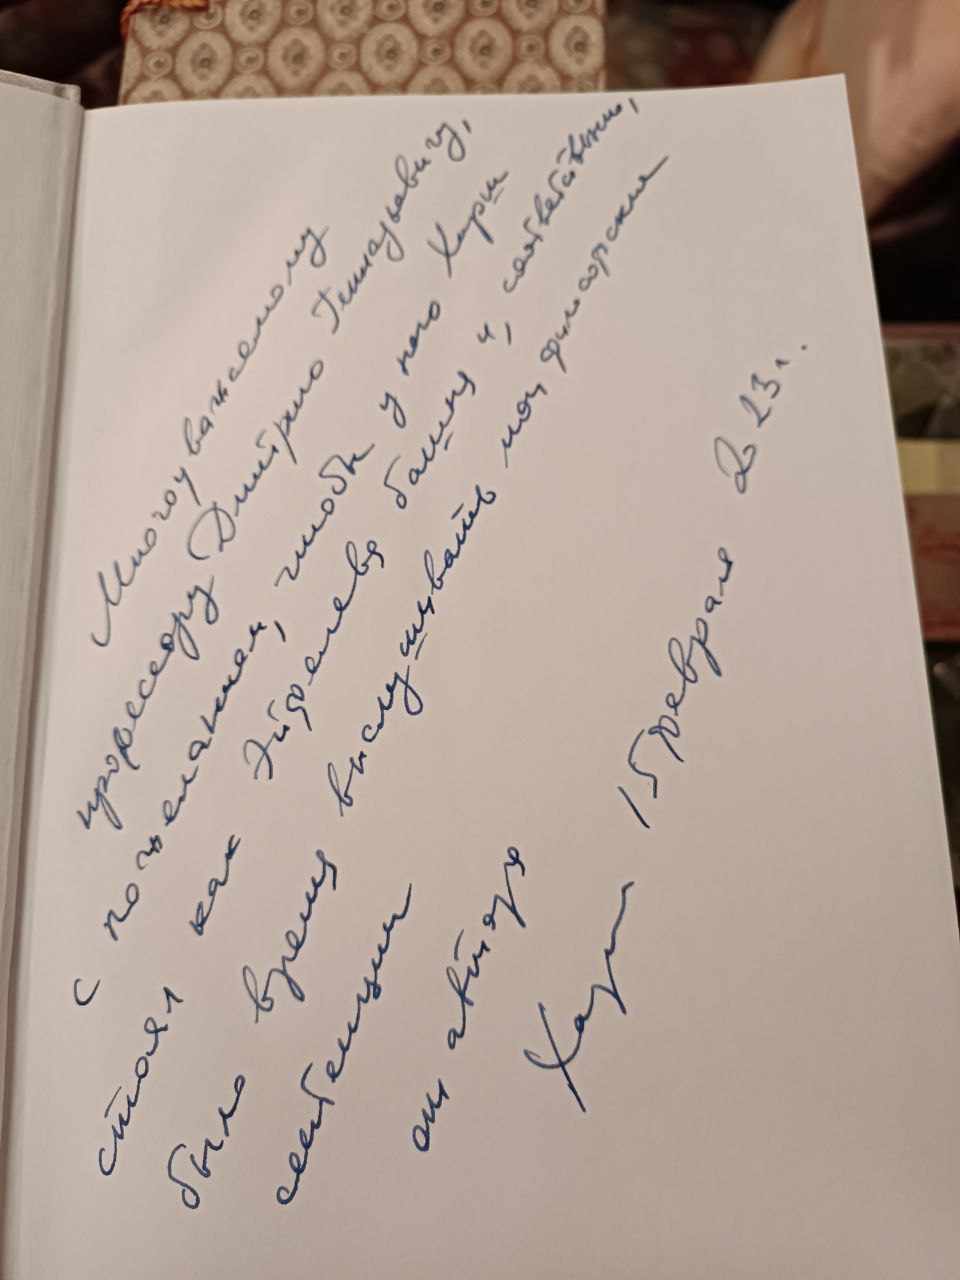 Многоуважаемому
профессору Дмитрию Геннадьевичу,
с пожеланием, чтобы у него Харш
стоял как Эйфелева башня и, соответственно,
было время выслушивать мои философские
сентенции
от автора
15 февраля 2023 г.